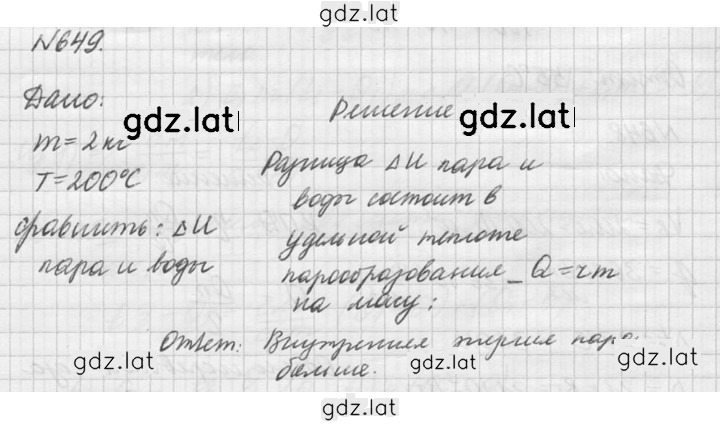 gdz.lat
N649.
Дано:
Решение
gdz.lat
gdz.lat
m=2кг
T=200°C
Разница ΔU пара и
воды состоит в
сравнить: ΔU
удельной теплоте
пара и воды
парообразования_ Q=rm
на массу;
Ответ: Внутренняя энергия пара
больше.
gdz.lat
gdz.lat
gdz.lat
gdz.lat